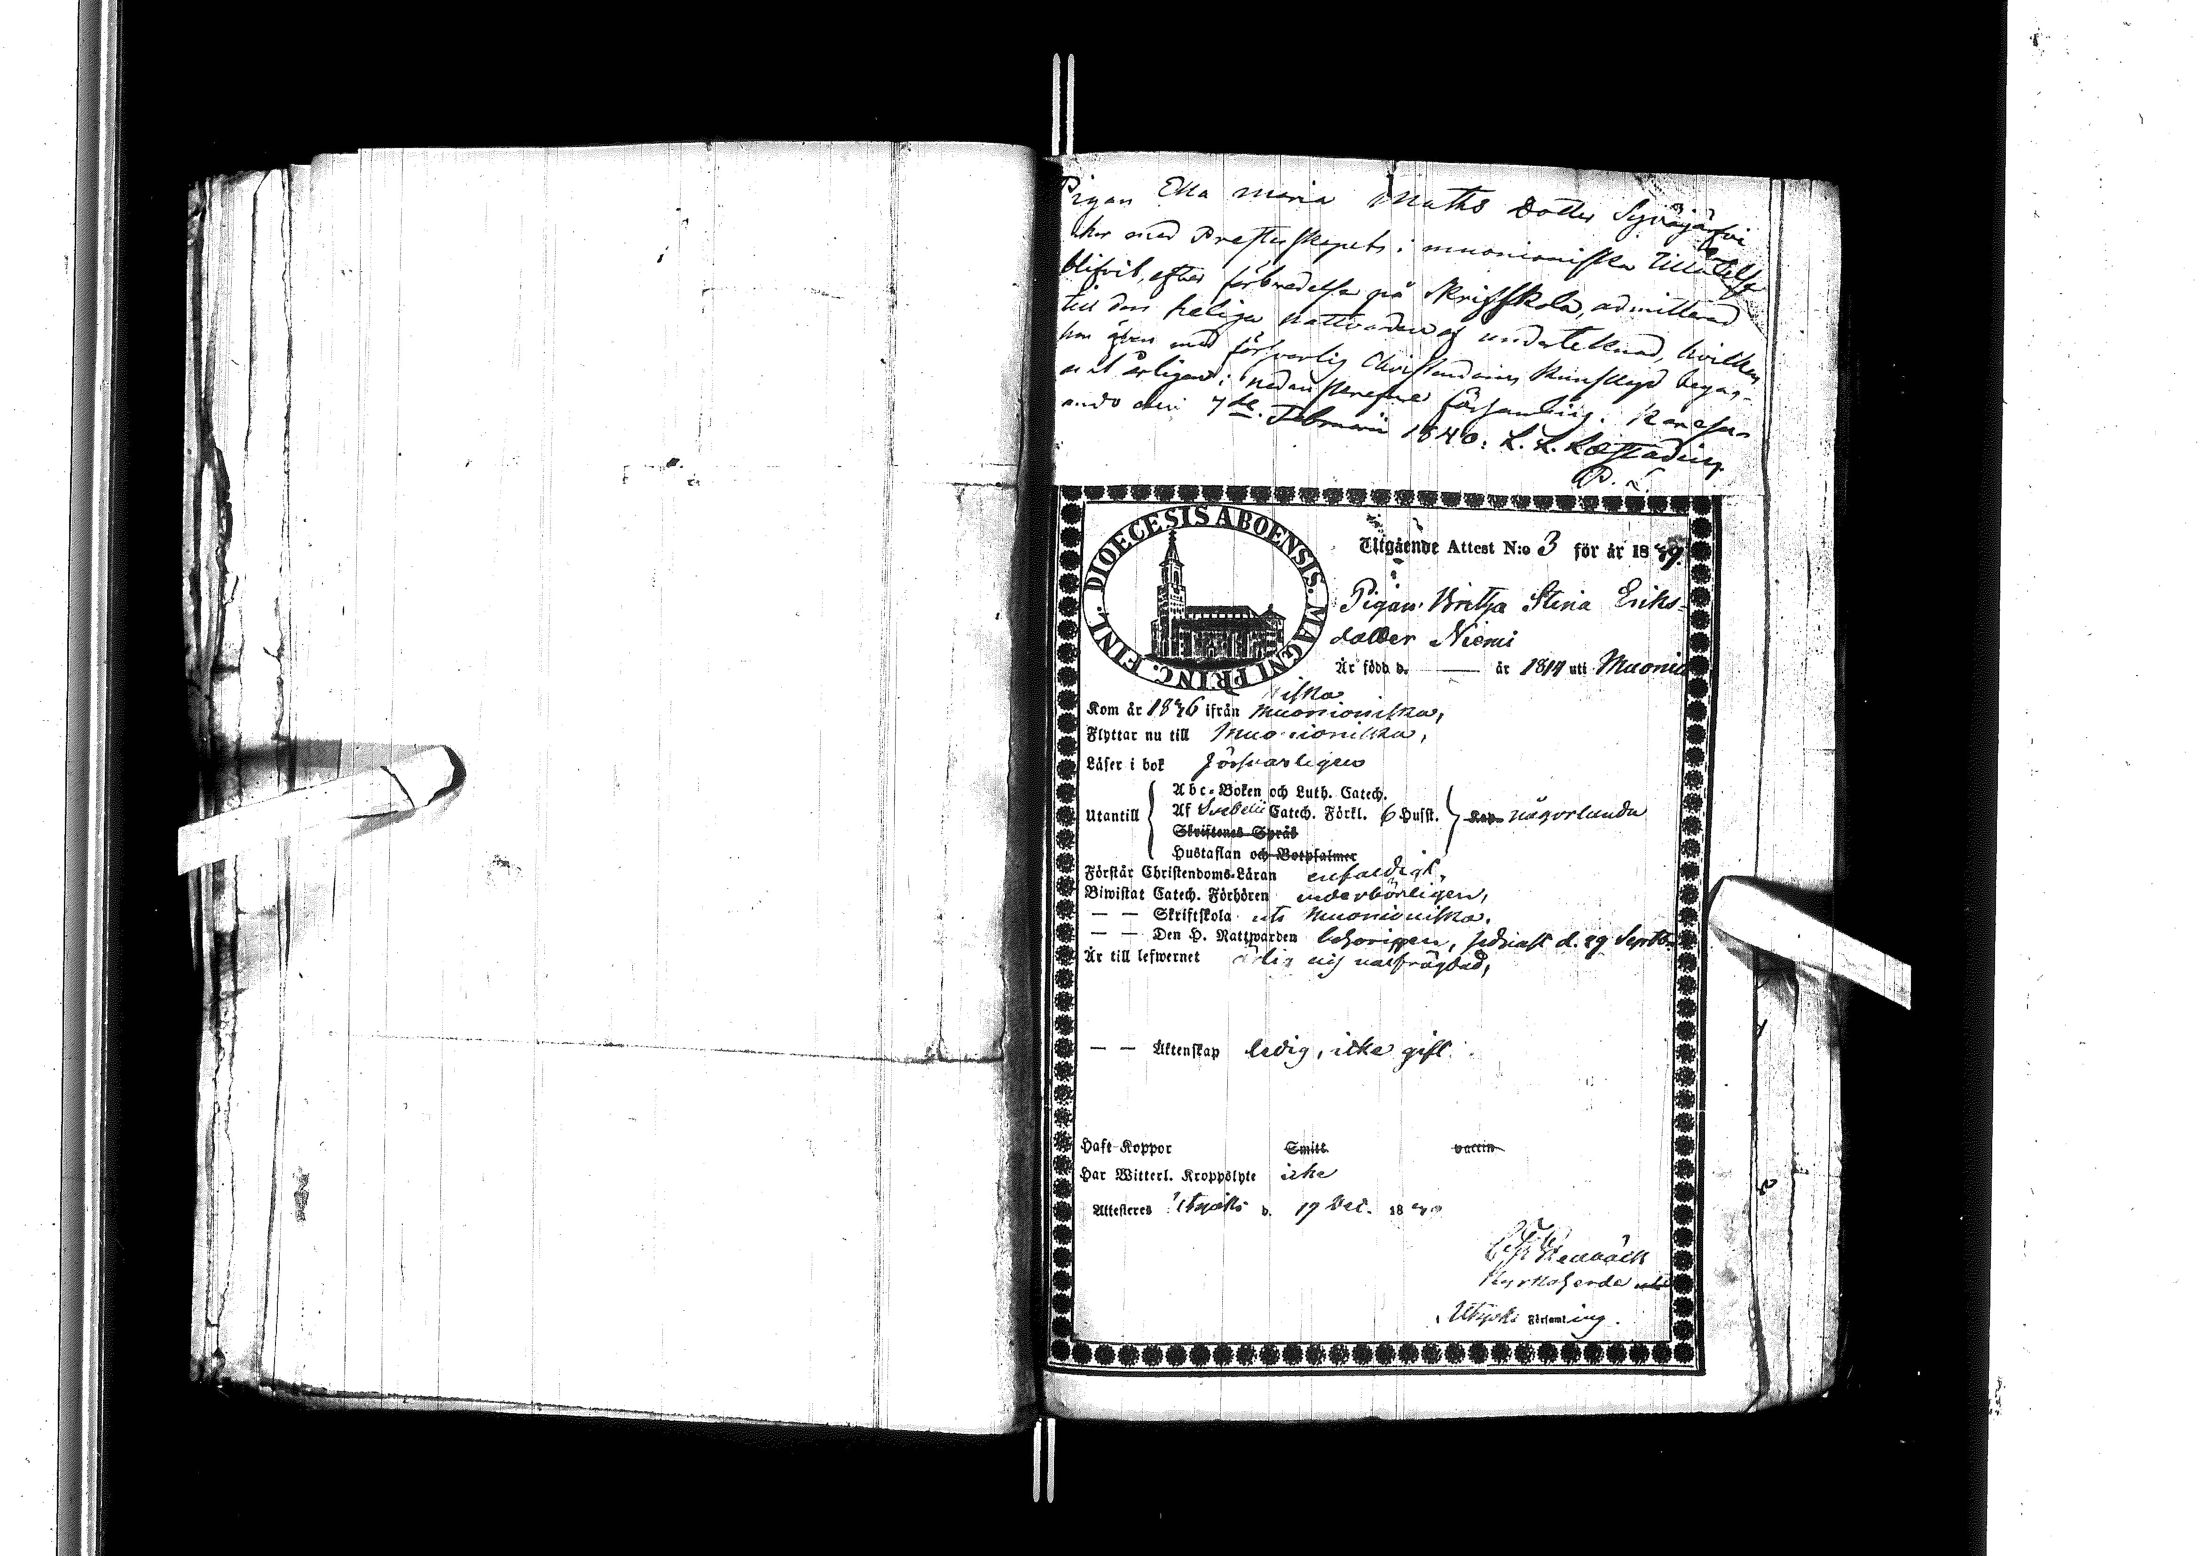 Pigan Ella maria Maths Dotter Syväjärfvi
har med Presterskapets i muonioniska Tillåtelse
blifvit, efter förberedelse på Skriftskola, admitterad
till den heliga nattvarden af undertecknad, hvilken
hon även med försvarlig Christendoms kunskap begas-
at årligen i nedanskrefne församling. Karesu-
ando den 7de Februarii 1840. L. L. Læstadius.
P. L.
DIOECESIS ABOENSIS. MAGNI PRINC. FINL.
Utgående Attest N:o 3 för år 1839.
Pigan Britha Stina Eriks-
dotter Niemi
Är född d. — år 1814 uti Muonio
niska
Kom år 1836 ifrån Muonioniska,
Flyttar nu till Muonioniska,
Läser i bok försvarligen
Abc-Boken och Luth. Catech.
Utantill Af Svebelii Catech. Förkl. 6 Hufst. Kap. någorlunda
Skriftenes Språk
Hustaflan och Botpsalmer
Förstår Christendoms-Läran enfaldigt,
Biwistat Catech. Förhören vederbörligen,
— — Skriftskola uti Muonioniska.
— — Den H. Nattwarden behörigen, sednast d. 29 Septbr
Är till lefwernet ärlig och välfrägdad,
— — Äktenskap ledig, icke gift.
Haft Koppor Smitt. vaccin
Har Witterl. Kroppslyte icke
Attesteres Utsjoki d. 17 Dec. 1839
Kyrkoherde uti
Utsjoki Församling.